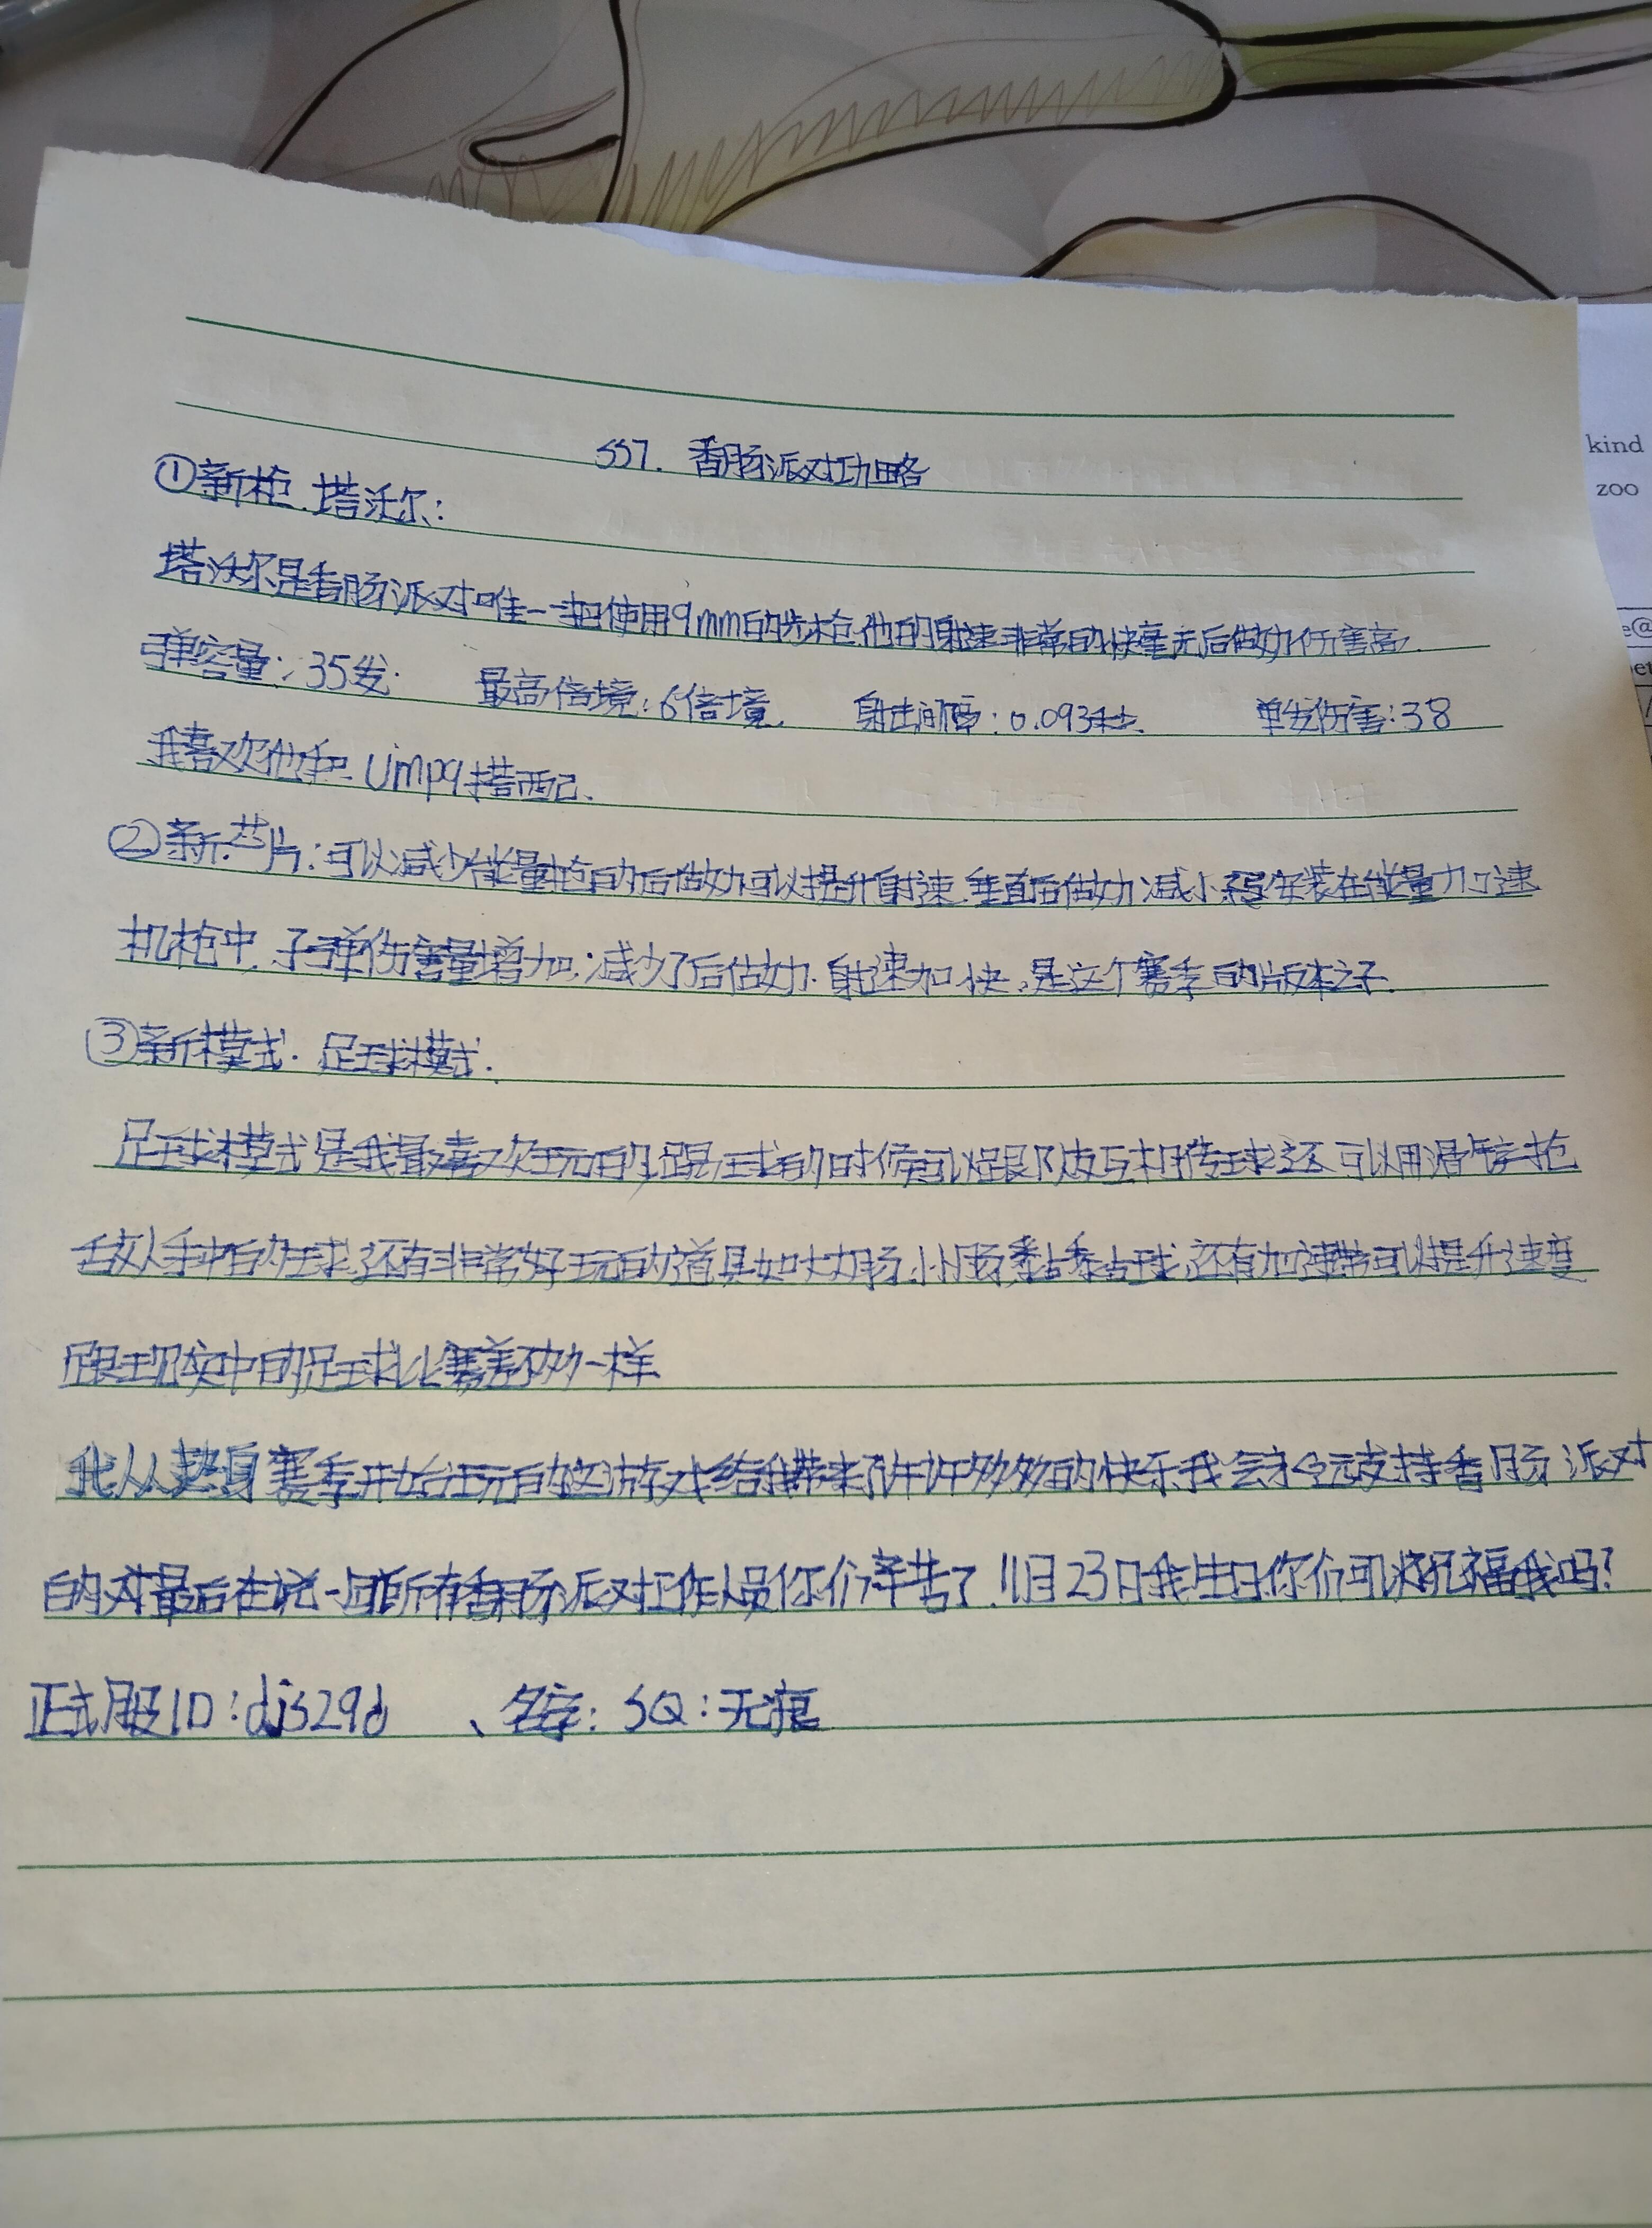 SS7. 香肠派对功略
①新枪.塔沃尔:
塔沃尔是香肠派对唯一一把使用9mm的步枪.他的射速非常的快毫无后做力伤害高.
弹容量:35发. 最高倍境:6倍境. 射击间隔:0.093秒. 单发伤害:38
我喜欢他和Ump9搭配.
②新芯片:可以减少能量枪的后做力可以提升射速.垂直后做力减小.安装在能量加速
机枪中.子弹伤害量增加,减少了后做力.射速加快,是这个赛季的版本之子.
③新模式.足球模式.
足球模式是我最喜欢玩的,踢球的时候可以跟队友互相传球还可以用滑铲抢
敌人手中的球.还有非常好玩的道具如大力肠.小肠黏黏球.还有加速带可以提升速度
跟现实中的足球比赛差不多一样
我从热身赛季开始玩的这游戏给我带来了许许多多的快乐我会永远支持香肠派对
的.对最后在说一句所有香肠派对工作人员你们辛苦了.11月23日我生日你们可以祝福我吗?
正式服ID:djs29d 、名字:SQ:无痕
kind
zoo
e@